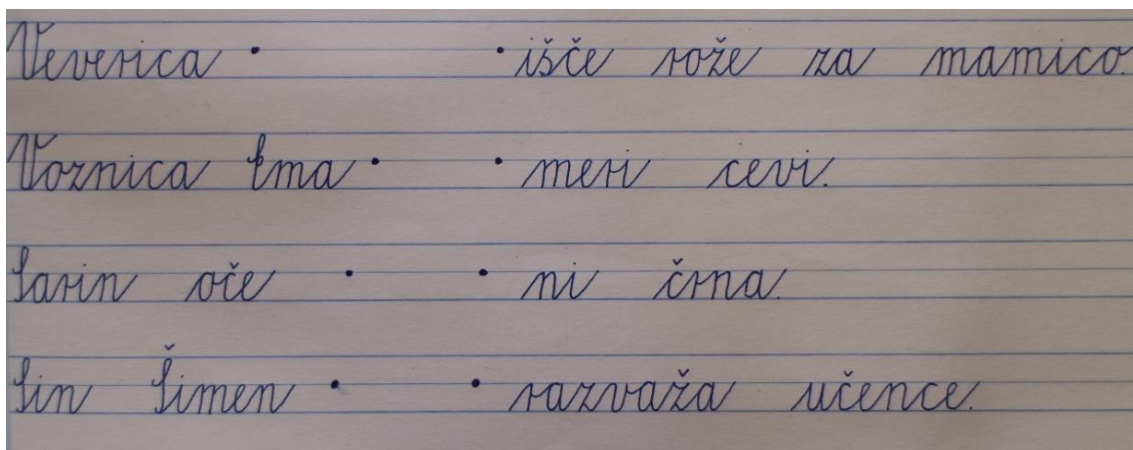 Veverica • • išče rože za mamico.
Voznica Ema • • meri cevi.
Sarin oče • • ni črna.
Sin Šimen • • razvaža učence.